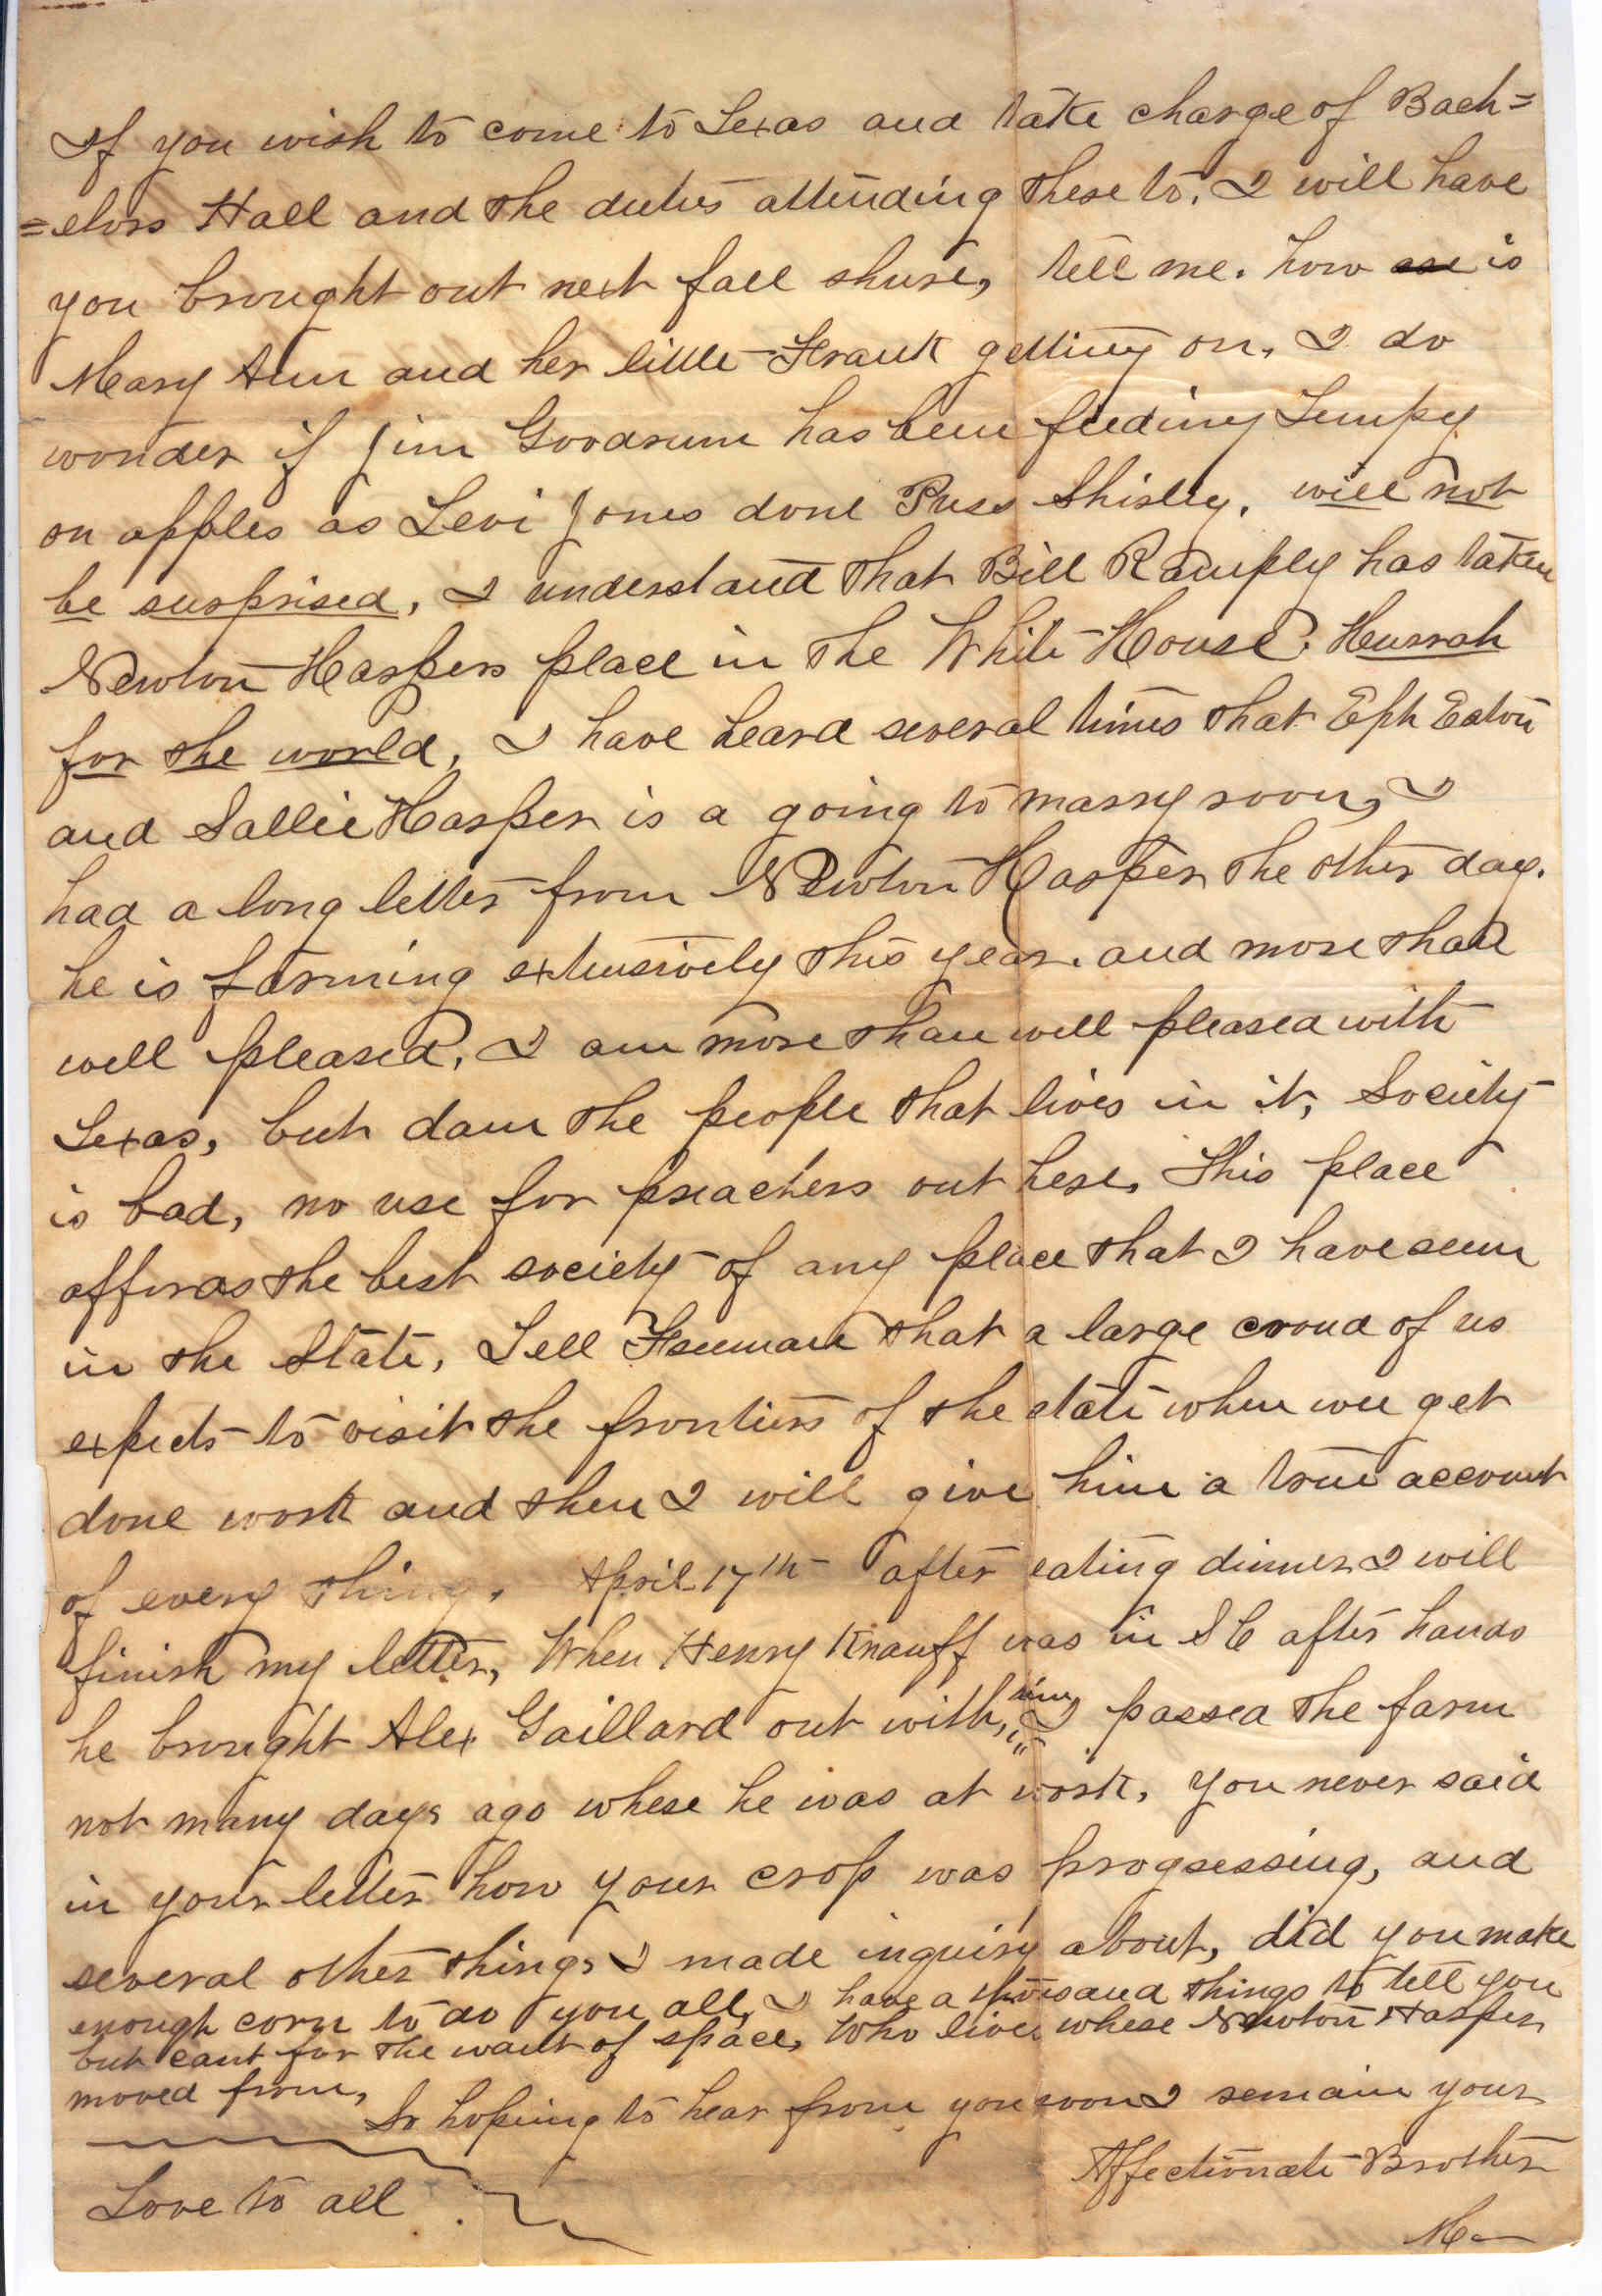 If you wish to come to Texas and take charge of Bach=
=elors Hall and the duties attending there to. I will have
you brought out next fall shure, tell me. how is
Mary Ann and her little Frank getting on, I do
wonder if Jim Goodrum has been feeding Tempy
on apples as Levi Jones done Puss Shirley. will not
be surprised, I understand that Bill Rampley has taken
Newton Harpers place in the White House. Hurrah
for the world, I have heard several times that Eph Eaton
and Sallie Harper is a going to marry soon, I
had a long letter from Newton Harper the other day.
he is farming extensively this year. and more than
well pleased. I am more than well pleased with
Texas, but dam the people that lives in it, Society
is bad, no use for preachers out here, This place
affords the best society of any place that I have seen
in the State, Tell Freeman that a large croud of us
expects to visit the frontiers of the state when wee get
done work and then I will give him a true account
of every thing. April 17th after eating dinner I will
finish my letter, When Henry Knauff was in SC after hands
he brought Alex Gaillard out with him, I passed the farm
not many days ago where he was at work, you never said
in your letter how your crop was progressing, and
several other things I made inquiry about, did you make
enough corn to do you all, I have a thousand things to tell you
but cant for the want of space, Who lives where Newton Harper
moved from,
So hoping to hear from you soon I remain your
Affectionate Brother
M
Love to all